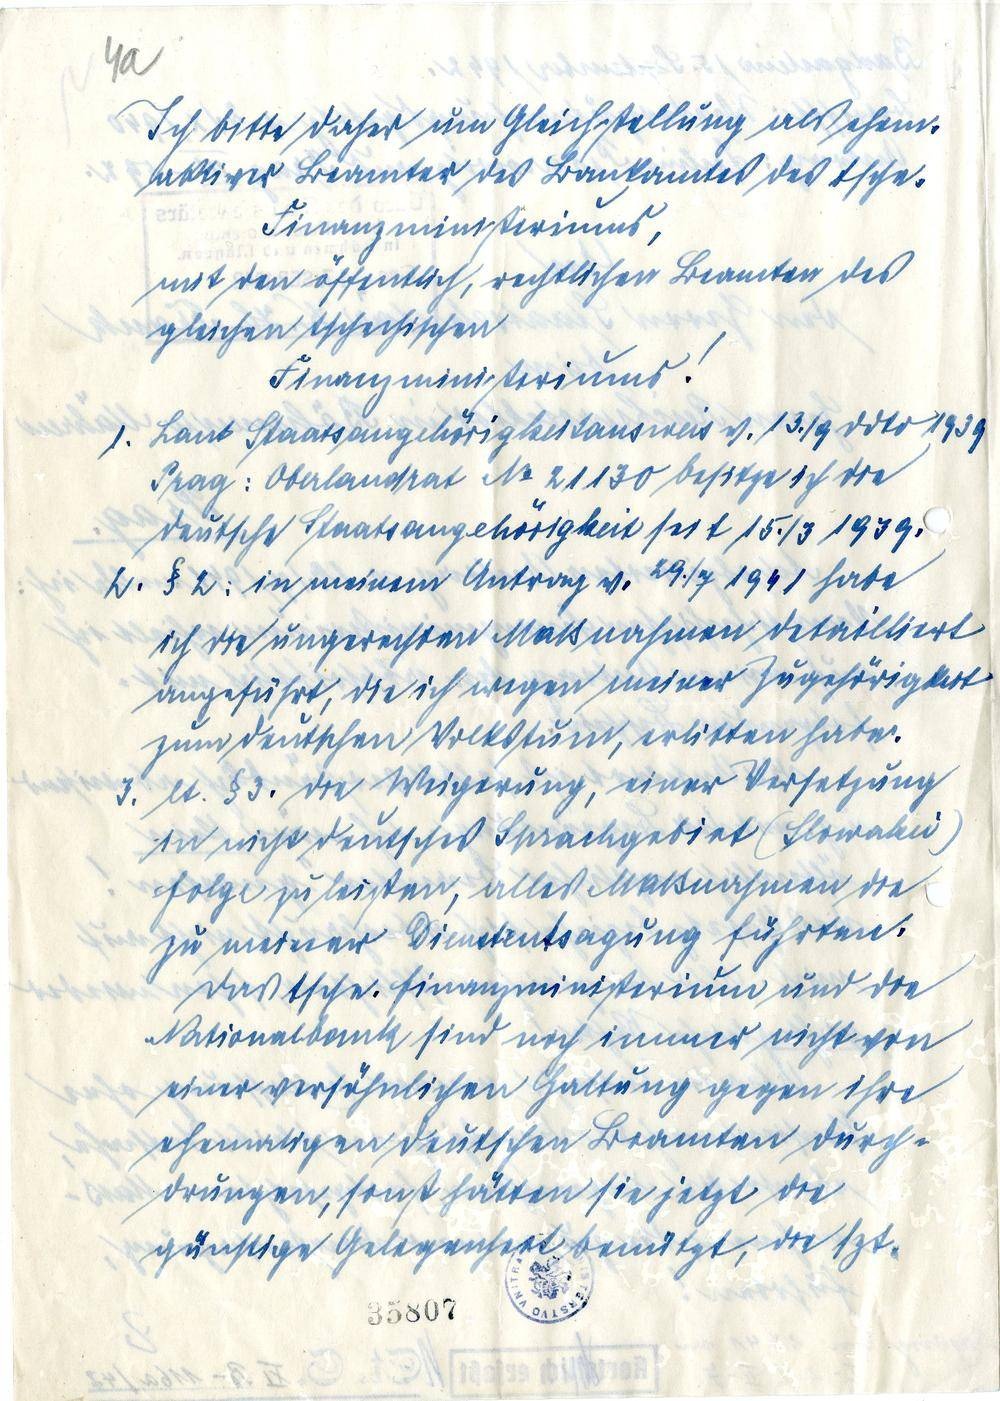 4a
Ich bitte daher um Gleichstellung als ehem.
aktiver Beamter des Bankamtes des tsche.
Finanzministeriums,
mit den öffentlich, rechtlichen Beamten des
gleichen tschechischen
Finanzministeriums!
1. Laut Staatsangehörigkeitsausweis v. 13./9 ddto 1939
Prag: Oberlandrat No 21130 besitze ich die
deutsche Staatsangehörigkeit seit 15./3 1939.
2. § 2: in meinem Antrag v. 29./7 1941 habe
ich die ungerechten Maßnahmen detailliert
angeführt, die ich wegen meiner Zugehörigkeit
zum deutschen Volkstum, erlitten habe.
3. lt. § 3. die Weigerung, einer Versetzung
in nicht deutsches Sprachgebiet (Slowakei)
folge zu leisten, alles Maßnahmen die
zu meiner Dienstentsagung führten.
Das tsche. Finanzministerium und die
Nationalbank sind noch immer nicht von
einer versöhnlichen Haltung gegen ihre
ehemaligen deutschen Beamten durch-
drungen, sonst hätten sie jetzt die
günstige Gelegenheit benützt, die szt.
35807